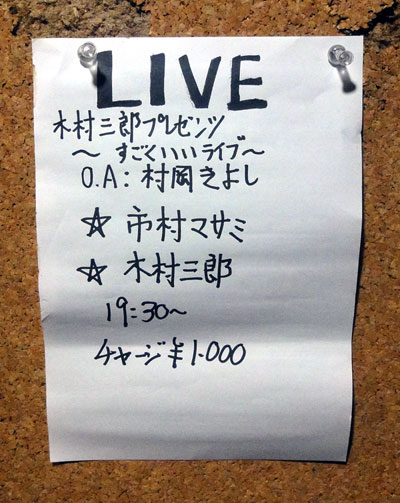 LIVE
木村三郎プレゼンツ
～すごくいいライブ～
O.A：村岡きよし
☆市村マサミ
☆木村三郎
19:30～
チャージ¥1.000